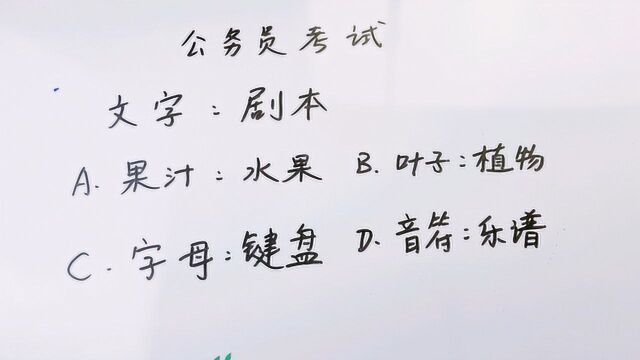 公务员考试
文字:剧本
A.果汁:水果 B.叶子:植物
C.字母:键盘 D.音符:乐谱